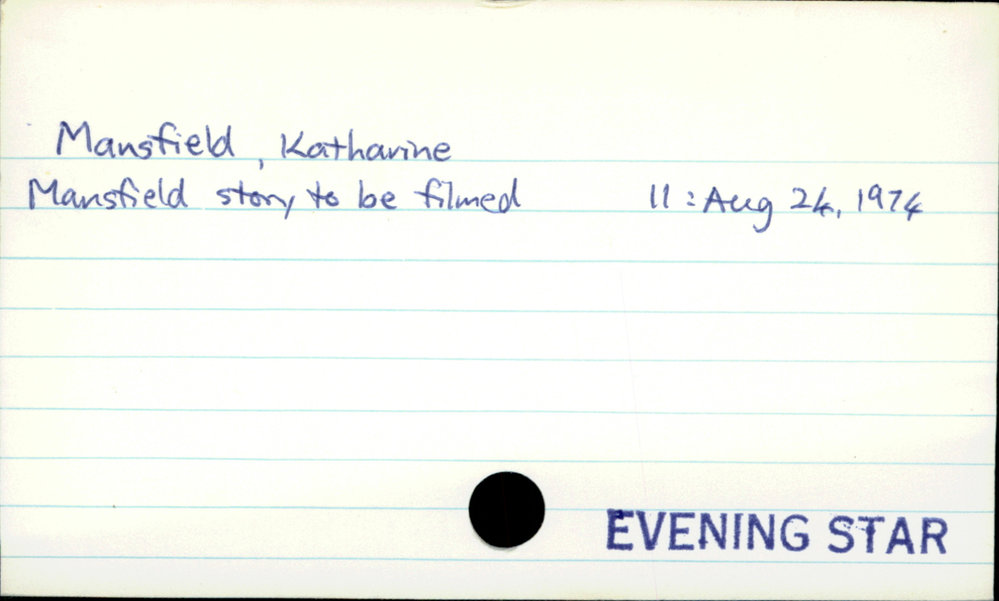 Mansfield, Katharine
Mansfield story to be filmed 11: Aug 24, 1974
EVENING STAR